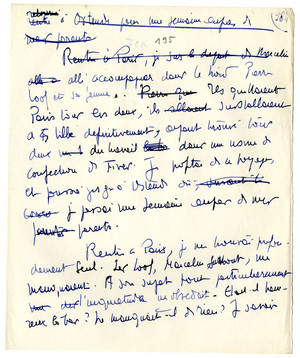 retourné
à Ostende pour une semaine auprès de (20)
mes parents
195
Rentré à Paris, je sur le départ de Marcelin
allé allé accompagner dans le nord Pierre
Loof et sa femme. Ils quittaient
Paris tous les deux, ils allaient s'installaient
à Lille définitivement, ayant trouvé tous
deux du travail dans une usine de
confection de Fives. Je profitai de ce voyage
et poussai jusqu'à Ostende où
je passai une semaine auprès de mes
parents.
Rentré à Paris, je me trouvai profon-
dément seul. Les Loof, Marcelin surtout, me
manquaient. A son sujet tout particulièrement
l'inquiétude m'obsédait. Etait-il heu-
reux là-bas ? Ne manquait-il de rien ? Je savais